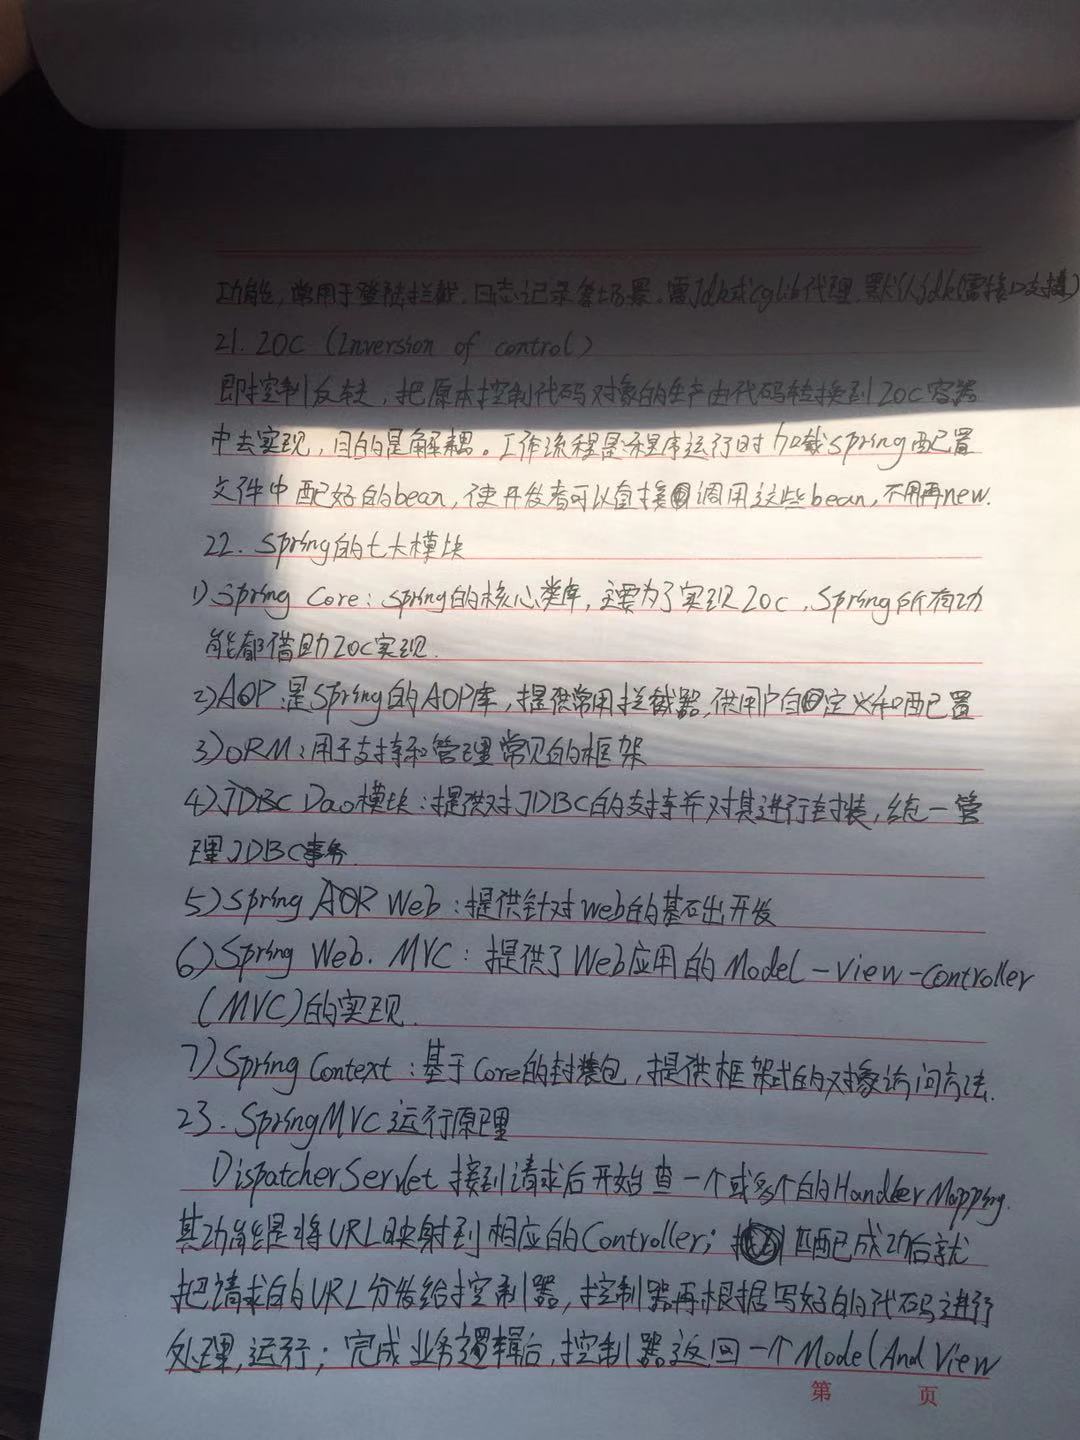 功能,常用于登陆拦截,日志记录等场景,需jdk或cglib代理,默认jdk(需接口支撑)
21.IOC(Inversion of control)
即控制反转,把原本控制代码对象的生产由代码转换到IOC容器
中去实现,目的是解耦。工作流程是程序运行时加载spring配置
文件中配好的bean,使开发者可以直接调用这些bean,不用再new.
22.Spring的七大模块
1)Spring Core:spring的核心类库,主要为了实现IOC,Spring所有功
能都借助IOC实现.
2)AOP:是Spring的AOP库,提供常用拦截器,供用户自定义和配置
3)ORM:用于支持和管理常见的框架
4)JDBC Dao模块:提供对JDBC的支持并对其进行封装,统一管
理JDBC事务.
5)Spring AOP Web:提供针对web的基础开发
6)Spring Web.MVC:提供了Web应用的Model-View-Controller
(MVC)的实现.
7)Spring Context:基于Core的封装包,提供框架式的对象访问方法.
23.SpringMVC运行原理
DispatcherServlet接到请求后开始查一个或多个的HandlerMapping.
其功能是将URL映射到相应的Controller;匹配成功后就
把请求的URL分发给控制器,控制器再根据写好的代码进行
处理,运行;完成业务逻辑后,控制器返回一个ModelAndView
第 页